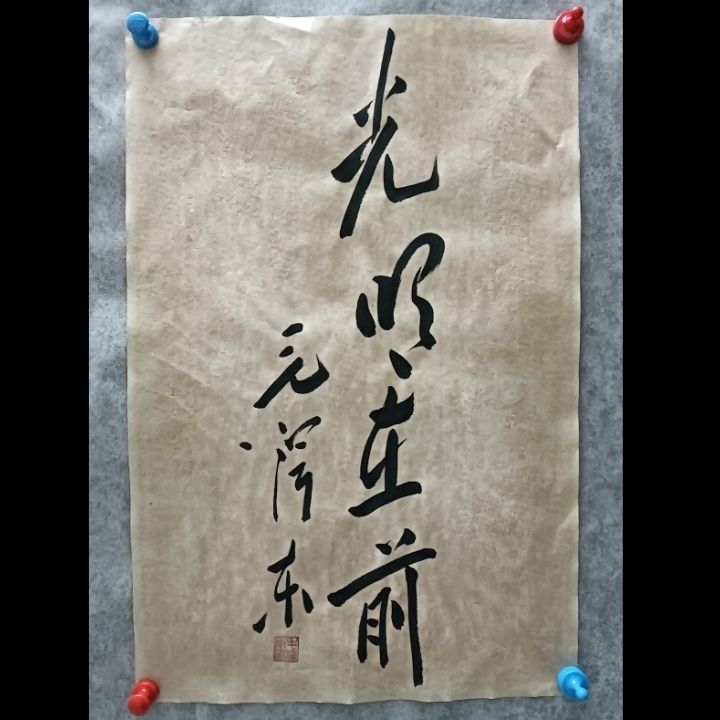 光明在前
毛泽东